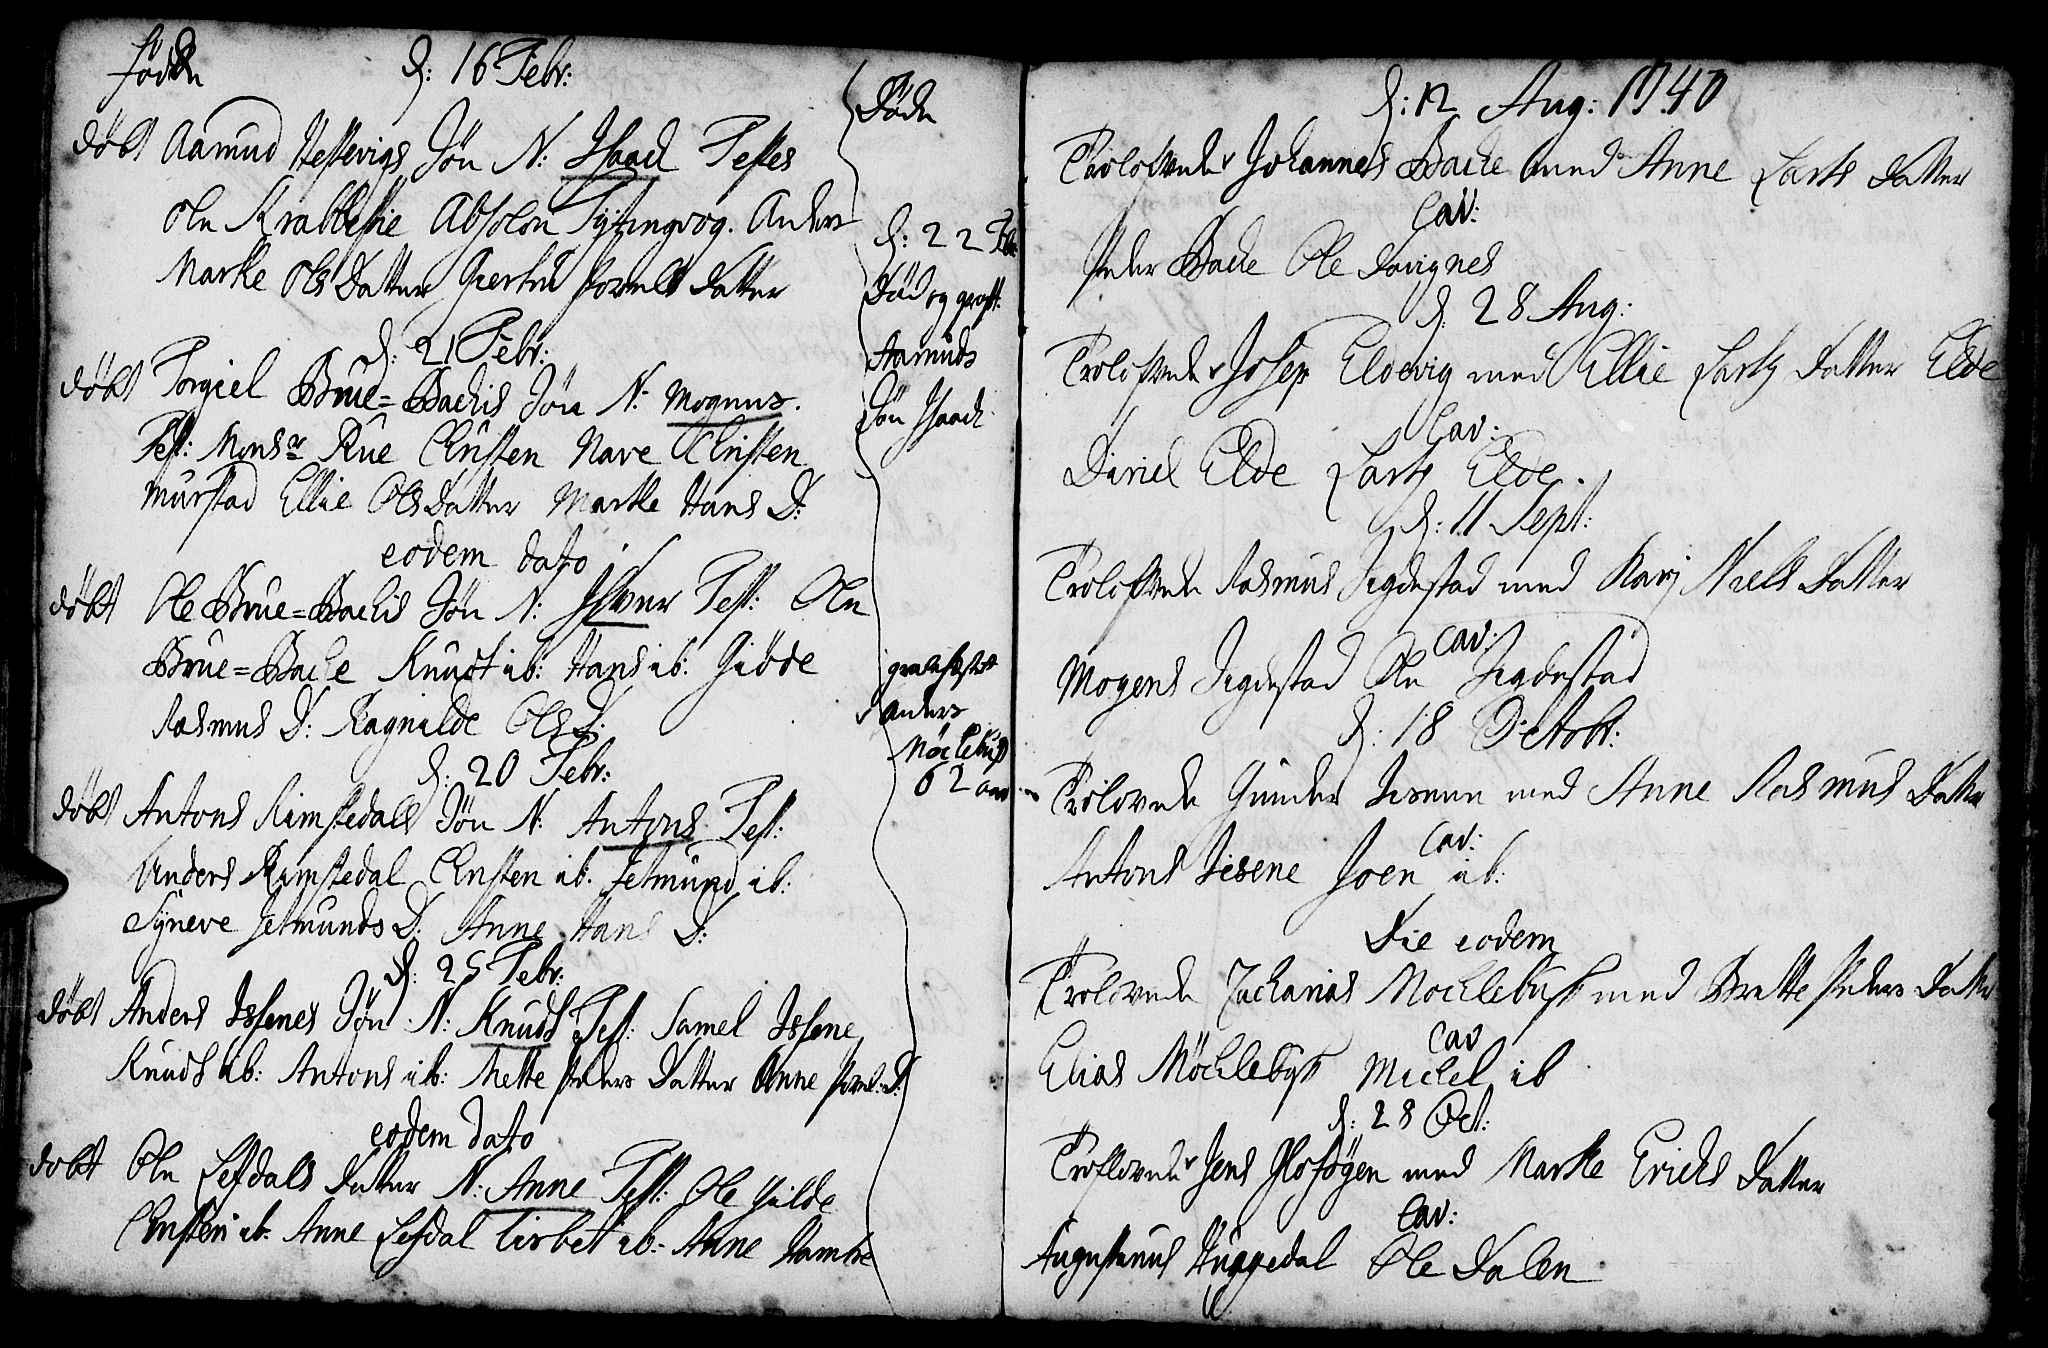 födde d: 16 Febr:
döbt Aamund Hessevigs Sön N: Isaach Testes
Ole Krabbestie Absolon Sÿtingvog. Anders
Marthe Ols Datter Giertrud Povels Datter
d: 21 Febr:
döbt Torgiel Brue=Bachis Sön N: Mognus.
Test: Monsr Rue Christen Nave Christen
Murstad Ellie Ols Datter Marthe Hans D:
eodem dato
döbt Ole Brue=Bachis Sön N: Iver Test: Ole
Brue=Bache Knudt ib: Hans ib: Giöde
Rasmus D: Ragnilde Ols D:
d: 20 Febr:
döbt Antons Rimstedals Sön N: Antons Test:
Anders Rimstedal Christen ib. Jetmund ib:
Syneve Jetmunds D. Anne Hans D:
d: 25 Febr:
döbt Anders Issenes Sön N: Knudt Test: Samel Issene
Knudt ib: Antons ib: Mette Peders Datter Anne Povels D:
eodem dato
döbt Ole Lefdals Datter N: Anne Test: Ole Gilde
Christen ib: Anne Lefdal Lisbet ib: Anne
Döde
d: 22 Febr
Död og
Aamunds
Sön Isaach
Anders
Möclebust
62 aar
d: 12 Aug: 1740
Trolofvede Johannes Bache med Anne Lars Datter
Cav:
Peder Bache Ole Davignes
d: 28 Aug:
Trolofvede Josep Eldevig med Ellie Lars Datter Elde
Cav:
Daniel Elde Lars Elde.
d: 11 Sept:
Trolofvede Rasmus Jegdestad med Kari Niels Datter
Cav:
Mogens Jegdestad Ole Jegdestad
d: 18 Octobr:
Trolovede Gunder Issene med Anne Rasmus Datter
Cav:
Antons Issene Joen ib:
Die eodem
Trolovede Zacharias Mochlebust med Brette Peders Datter
Cav
Elias Möchlebust Michel ib
d: 28 Oct:
Trolovede Jens med Marthe Erichs Datter
Cav:
Augustinus Huggedal Ole Dalen